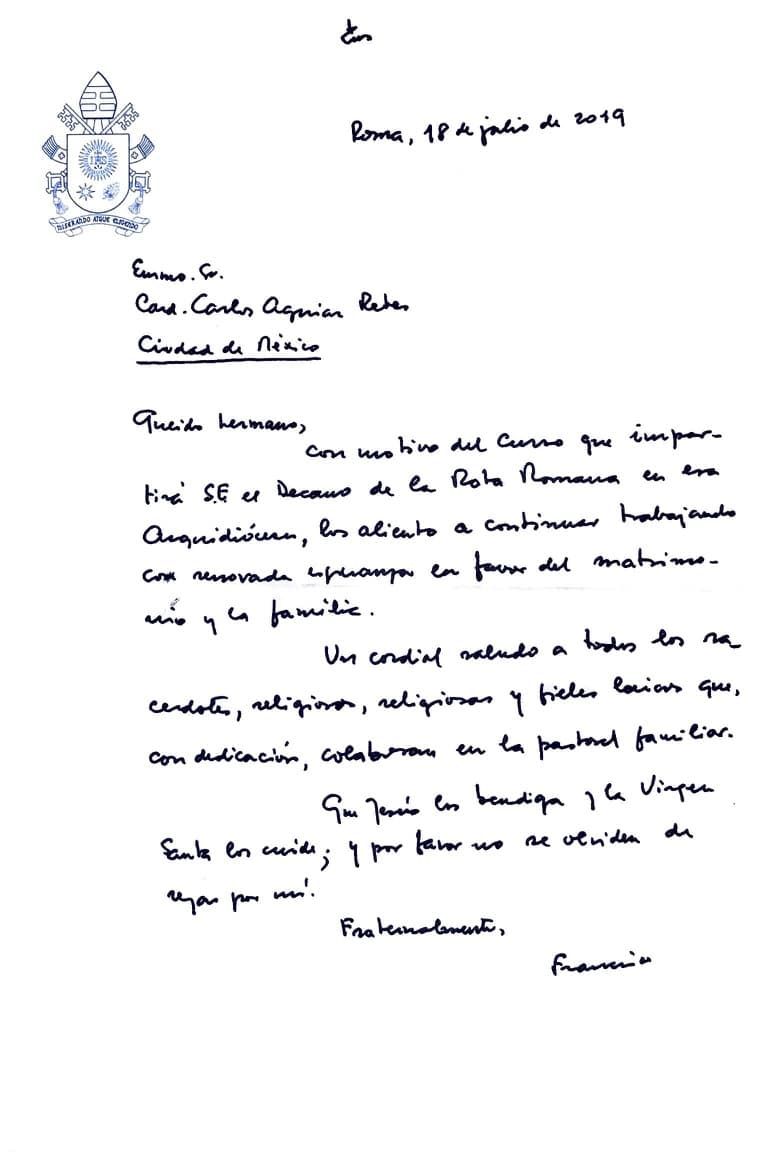 Roma, 18 de julio de 2019
IHS
MISERANDO ATQUE ELIGENDO
Emmo. Sr.
Card. Carlos Aguiar Retes
Ciudad de México
Querido hermano,
con motivo del Curso que impar-
tirá S.E el Decano de la Rota Romana en esa
Arquidiócesis, los aliento a continuar trabajando
con renovada esperanza en favor del matrimo-
nio y la familia.
Un cordial saludo a todos los sa
cerdotes, religiosos, religiosas y fieles laicos que,
con dedicación, colaboran en la pastoral familiar.
Que Jesús los bendiga y la Virgen
Santa los cuide; y por favor no se olviden de
rezar por mí.
Fraternalmente,
Francisco